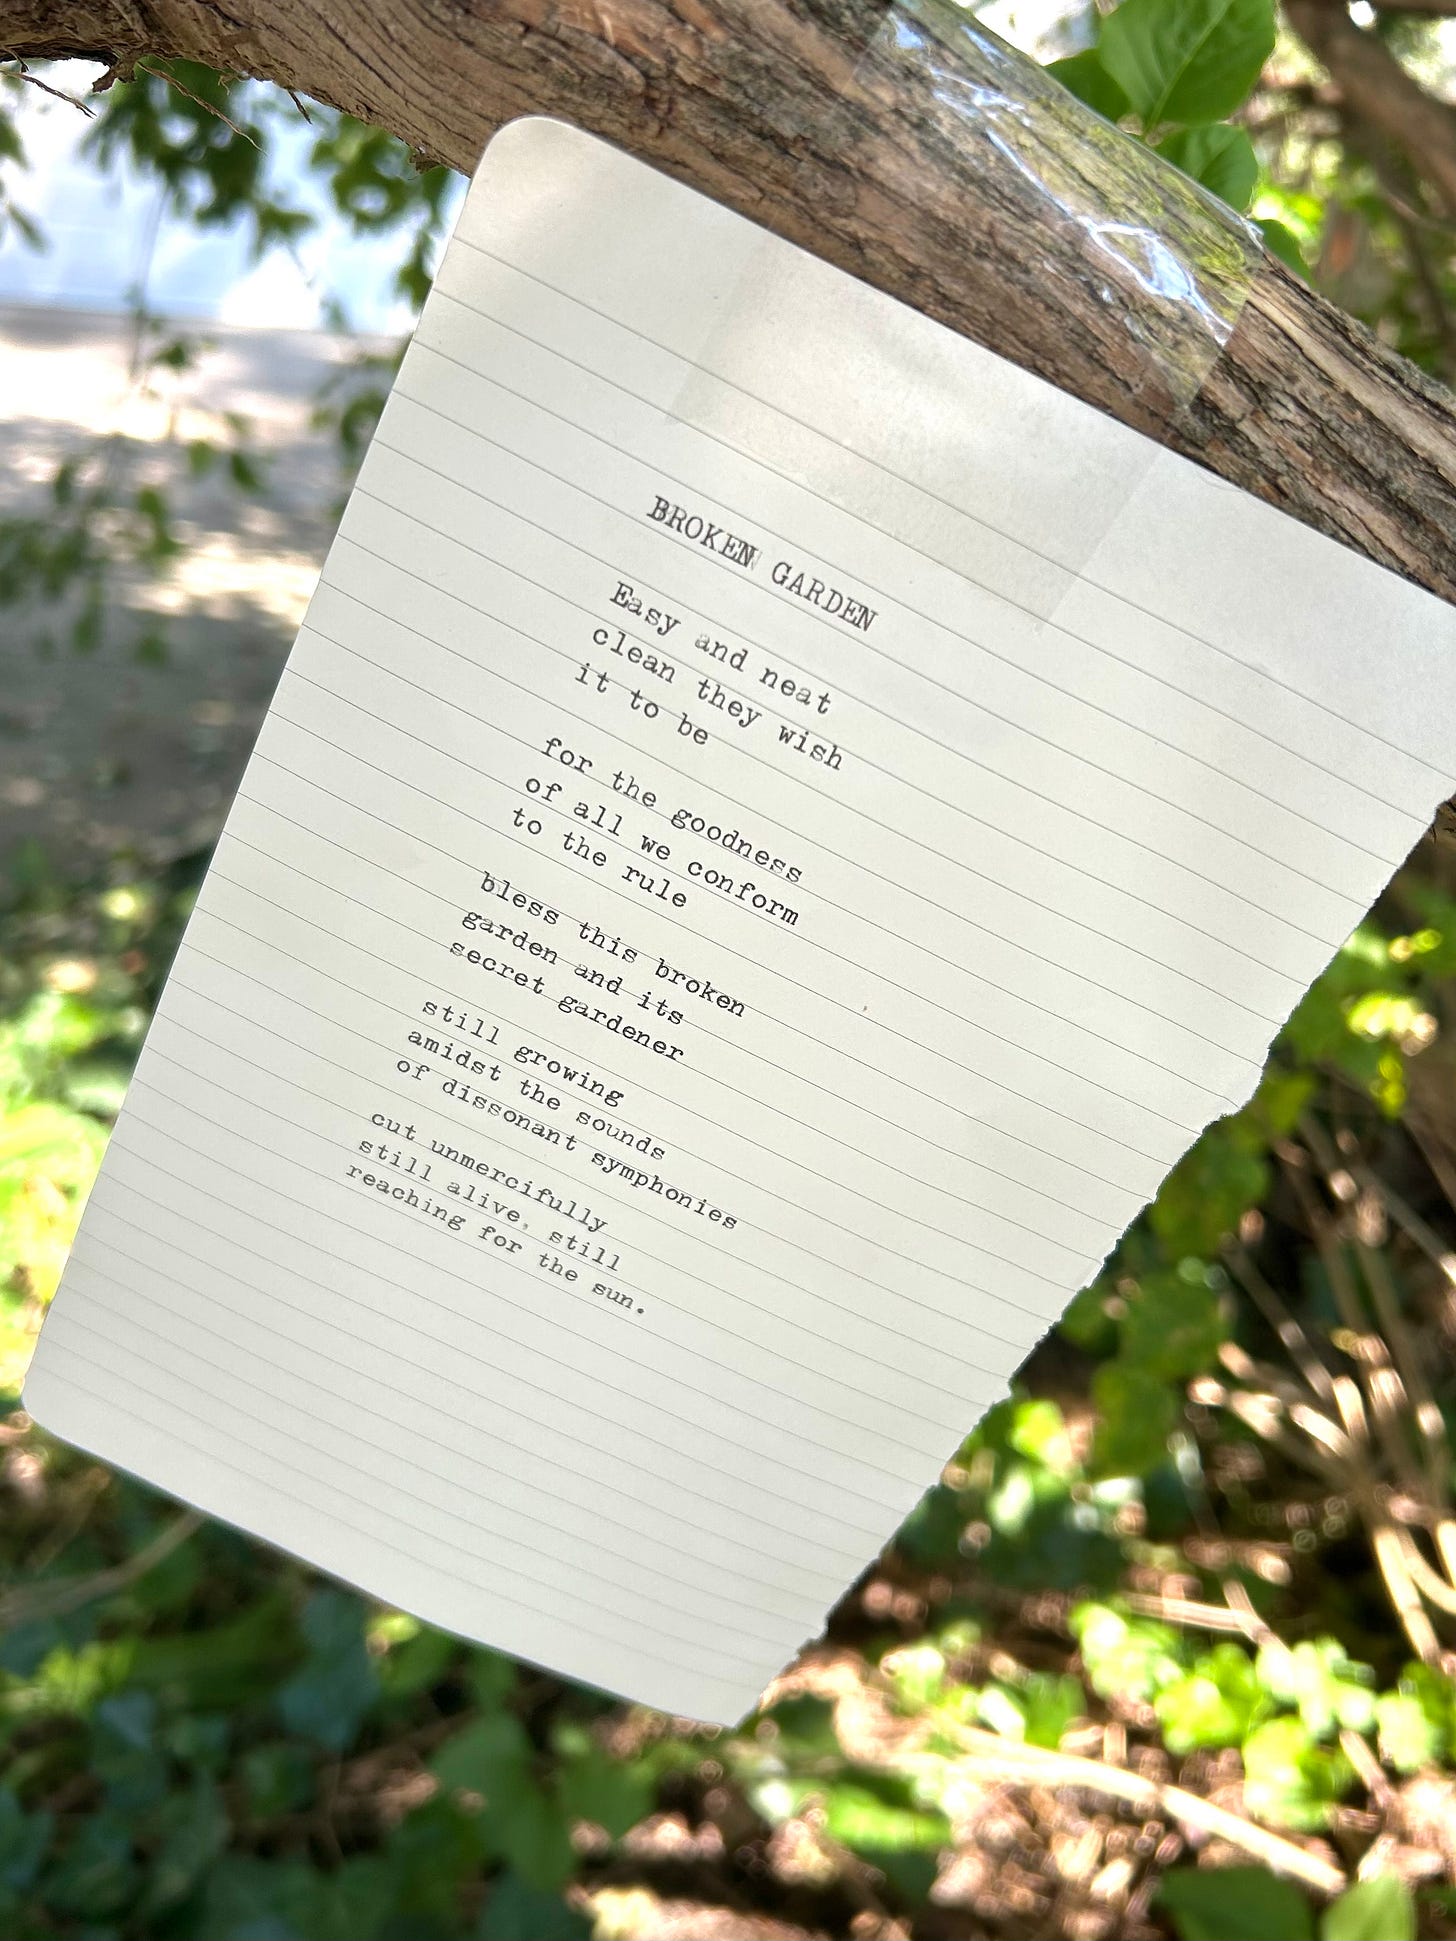 BROKEN GARDEN
Easy and neat
clean they wish
it to be
for the goodness
of all we conform
to the rule
bless this broken
garden and its
secret gardener
still growing
amidst the sounds
of dissonant symphonies
cut unmercifully
still alive, still
reaching for the sun.